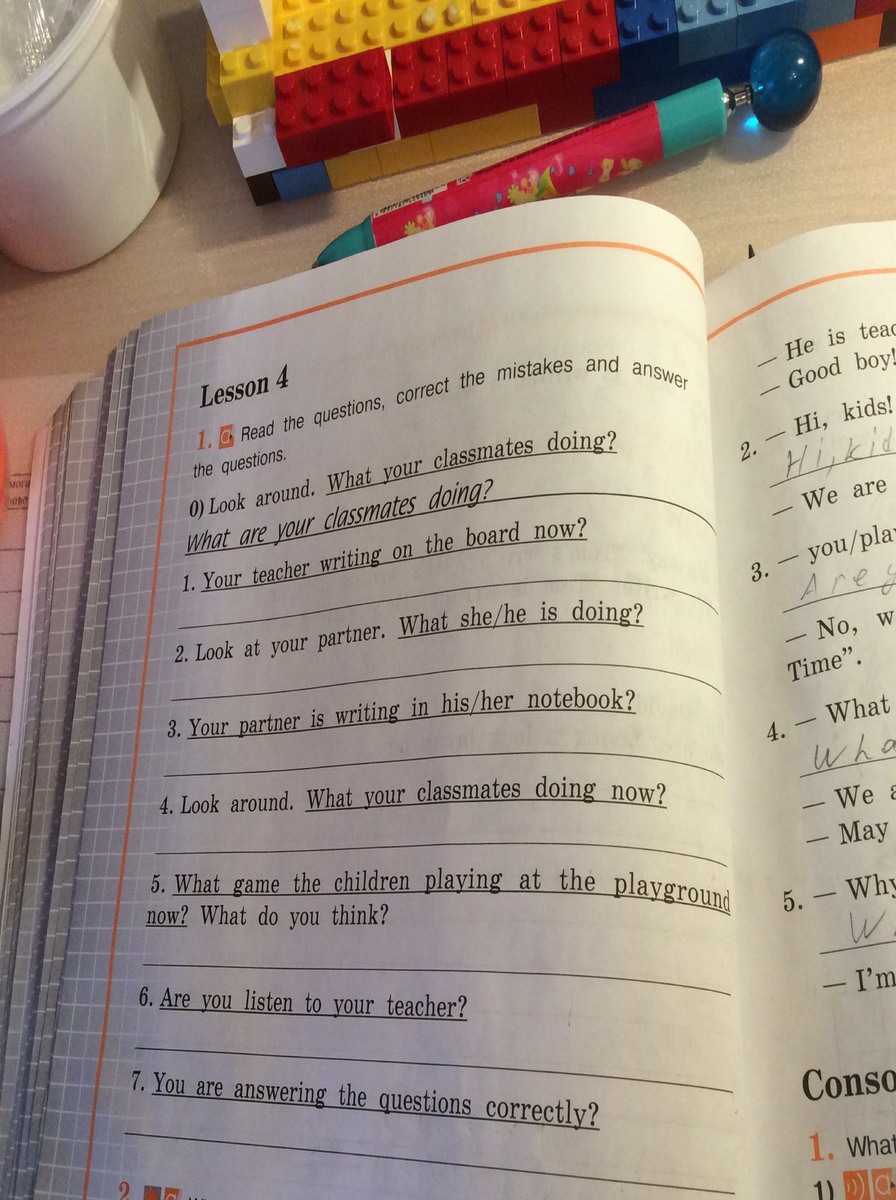 Lesson 4
1. Read the questions, correct the mistakes and answer
the questions.
0) Look around. What your classmates doing?
What are your classmates doing?
1. Your teacher writing on the board now?
2. Look at your partner. What she/he is doing?
3. Your partner is writing in his/her notebook?
4. Look around. What your classmates doing now?
5. What game the children playing at the playground
now? What do you think?
6. Are you listen to your teacher?
7. You are answering the questions correctly?
2.
— He is
— Good boy!
2. — Hi, kids!
Hi, kid
— We are
3. — you/pla
Are y
— No, w
Time”.
4. — What
Wha
— We a
— May
5. — Why
W
— I'm
Conso
1. What
1)